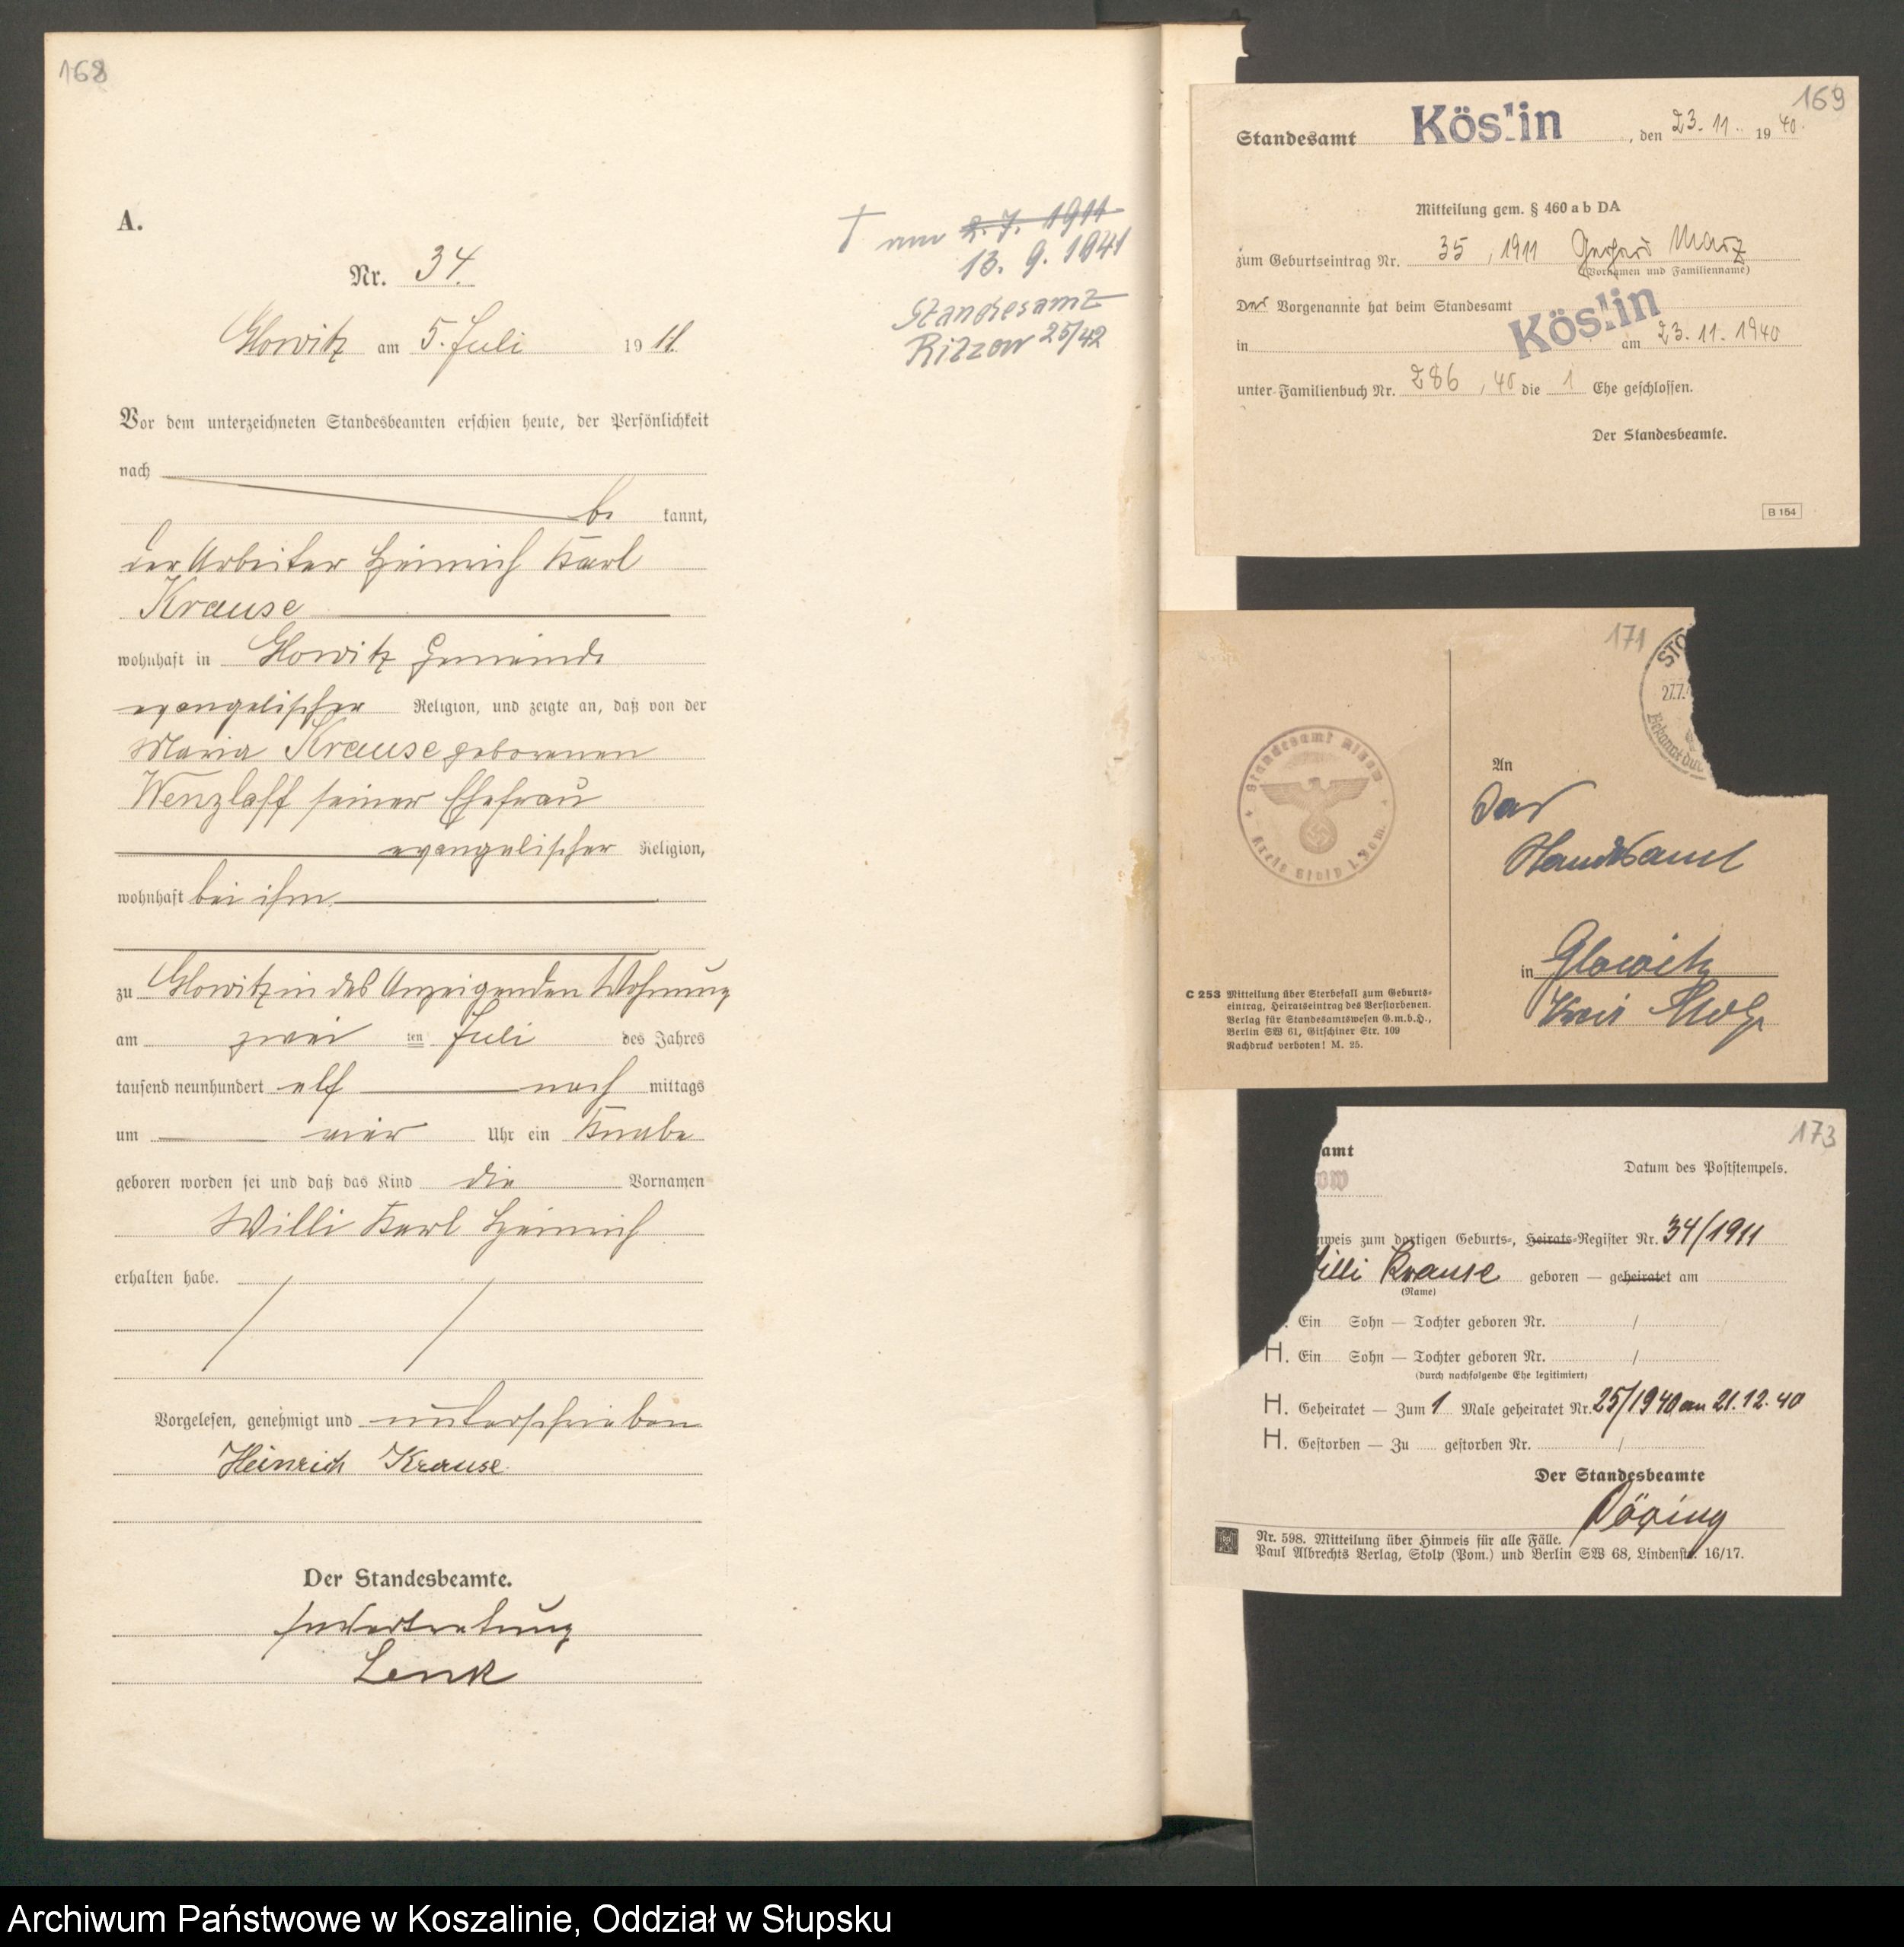 168
A.
Nr. 34.
Glowitz am 5. Juli 1911.
† am 2. 7. 1911
13. 9. 1941
Standesamt
Ritzow 25/42
Vor dem unterzeichneten Standesbeamten erschien heute, der Persönlichkeit
nach
be kannt,
der Arbeiter Heinrich Karl
Krause
wohnhaft in Glowitz Gemeinde
evangelischer Religion, und zeigte an, daß von der
Maria Krause geborenen
Wenzlaff seiner Ehefrau
evangelischer Religion,
wohnhaft bei ihm
zu Glowitz in des Anzeigenden Wohnung
am zwei ten Juli des Jahres
tausend neunhundert elf nach mittags
um vier Uhr ein Knabe
geboren worden sei und daß das Kind die Vornamen
Willi Karl Heinrich
erhalten habe.
Vorgelesen, genehmigt und unterschrieben
Heinrich Krause
Der Standesbeamte.
In Vertretung
Lenk
169
Standesamt Köslin, den 23. 11. 1940.
Mitteilung gem. § 460 a b DA
zum Geburtseintrag Nr. 35, 1911 Gerhard Marz
(Vornamen und Familienname)
Der Vorgenannte hat beim Standesamt
in Köslin am 23. 11. 1940
unter Familienbuch Nr. 286, 40 die 1 Ehe geschlossen.
Der Standesbeamte.
B 154
171
STO
27.7.
Bekannt dur
Standesamt Ritzow
Kreis Stolp i. Pom.
An
Das
Standesamt
in Glowitz
Kreis Stolp
C 253 Mitteilung über Sterbefall zum Geburts-
eintrag, Heiratseintrag des Verstorbenen.
Verlag für Standesamtswesen G.m.b.H.,
Berlin SW 61, Gitschiner Str. 109
Nachdruck verboten! M. 25.
173
amt
ow
Datum des Poststempels.
nweis zum dortigen Geburts-, Heirats-Register Nr. 34/1911
illi Krause geboren — geheiratet am
(Name)
. Ein Sohn — Tochter geboren Nr. /
H. Ein Sohn — Tochter geboren Nr. /
(durch nachfolgende Ehe legitimiert)
H. Geheiratet — Zum 1 Male geheiratet Nr. 25/1940 am 21. 12. 40
H. Gestorben — Zu gestorben Nr. /
Der Standesbeamte
Döring
Nr. 598. Mitteilung über Hinweis für alle Fälle.
Paul Albrechts Verlag, Stolp (Pom.) und Berlin SW 68, Lindenstr. 16/17.
Archiwum Państwowe w Koszalinie, Oddział w Słupsku